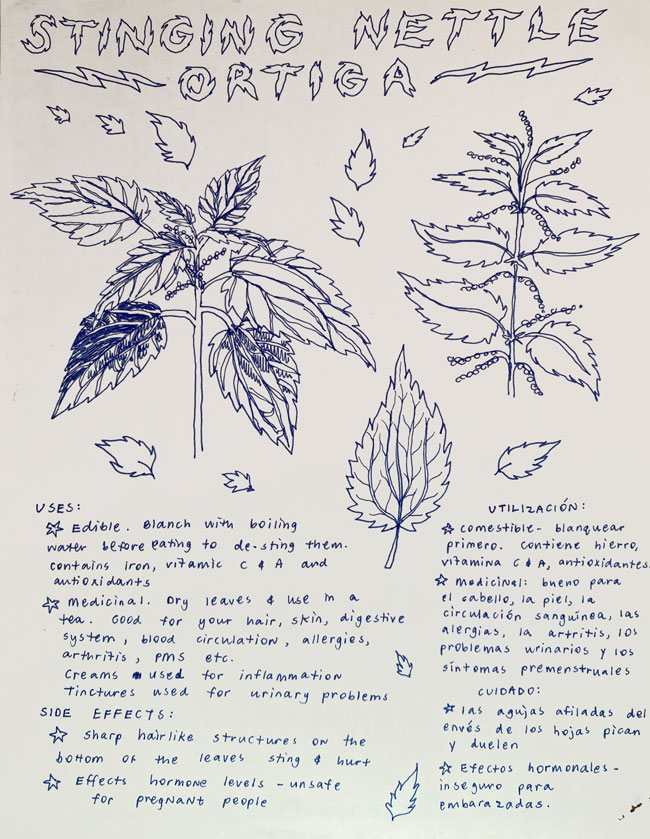 STINGING NETTLE
ORTIGA
USES:
☆ Edible. Blanch with boiling
water before eating to de-sting them.
contains iron, vitamic C & A and
antioxidants
☆ medicinal. Dry leaves & use in a
tea. Good for your hair, skin, digestive
system, blood circulation, allergies,
arthritis, PMS etc.
Creams used for inflammation
Tinctures used for urinary problems
SIDE EFFECTS:
☆ Sharp hairlike structures on the
bottom of the leaves sting & hurt
☆ Effects hormone levels - unsafe
for pregnant people
UTILIZACIÓN:
☆ comestible- blanquear
primero. contiene hierro,
vitamina C & A, antioxidantes.
☆ medicinal: bueno para
el cabello, la piel, la
circulación sanguínea, las
alergias, la artritis, los
problemas urinarios y los
síntomas premenstruales
CUIDADO:
☆ las agujas afiladas del
envés de los hojas pican
y duelen
☆ Efectos hormonales -
inseguro para
embarazadas.